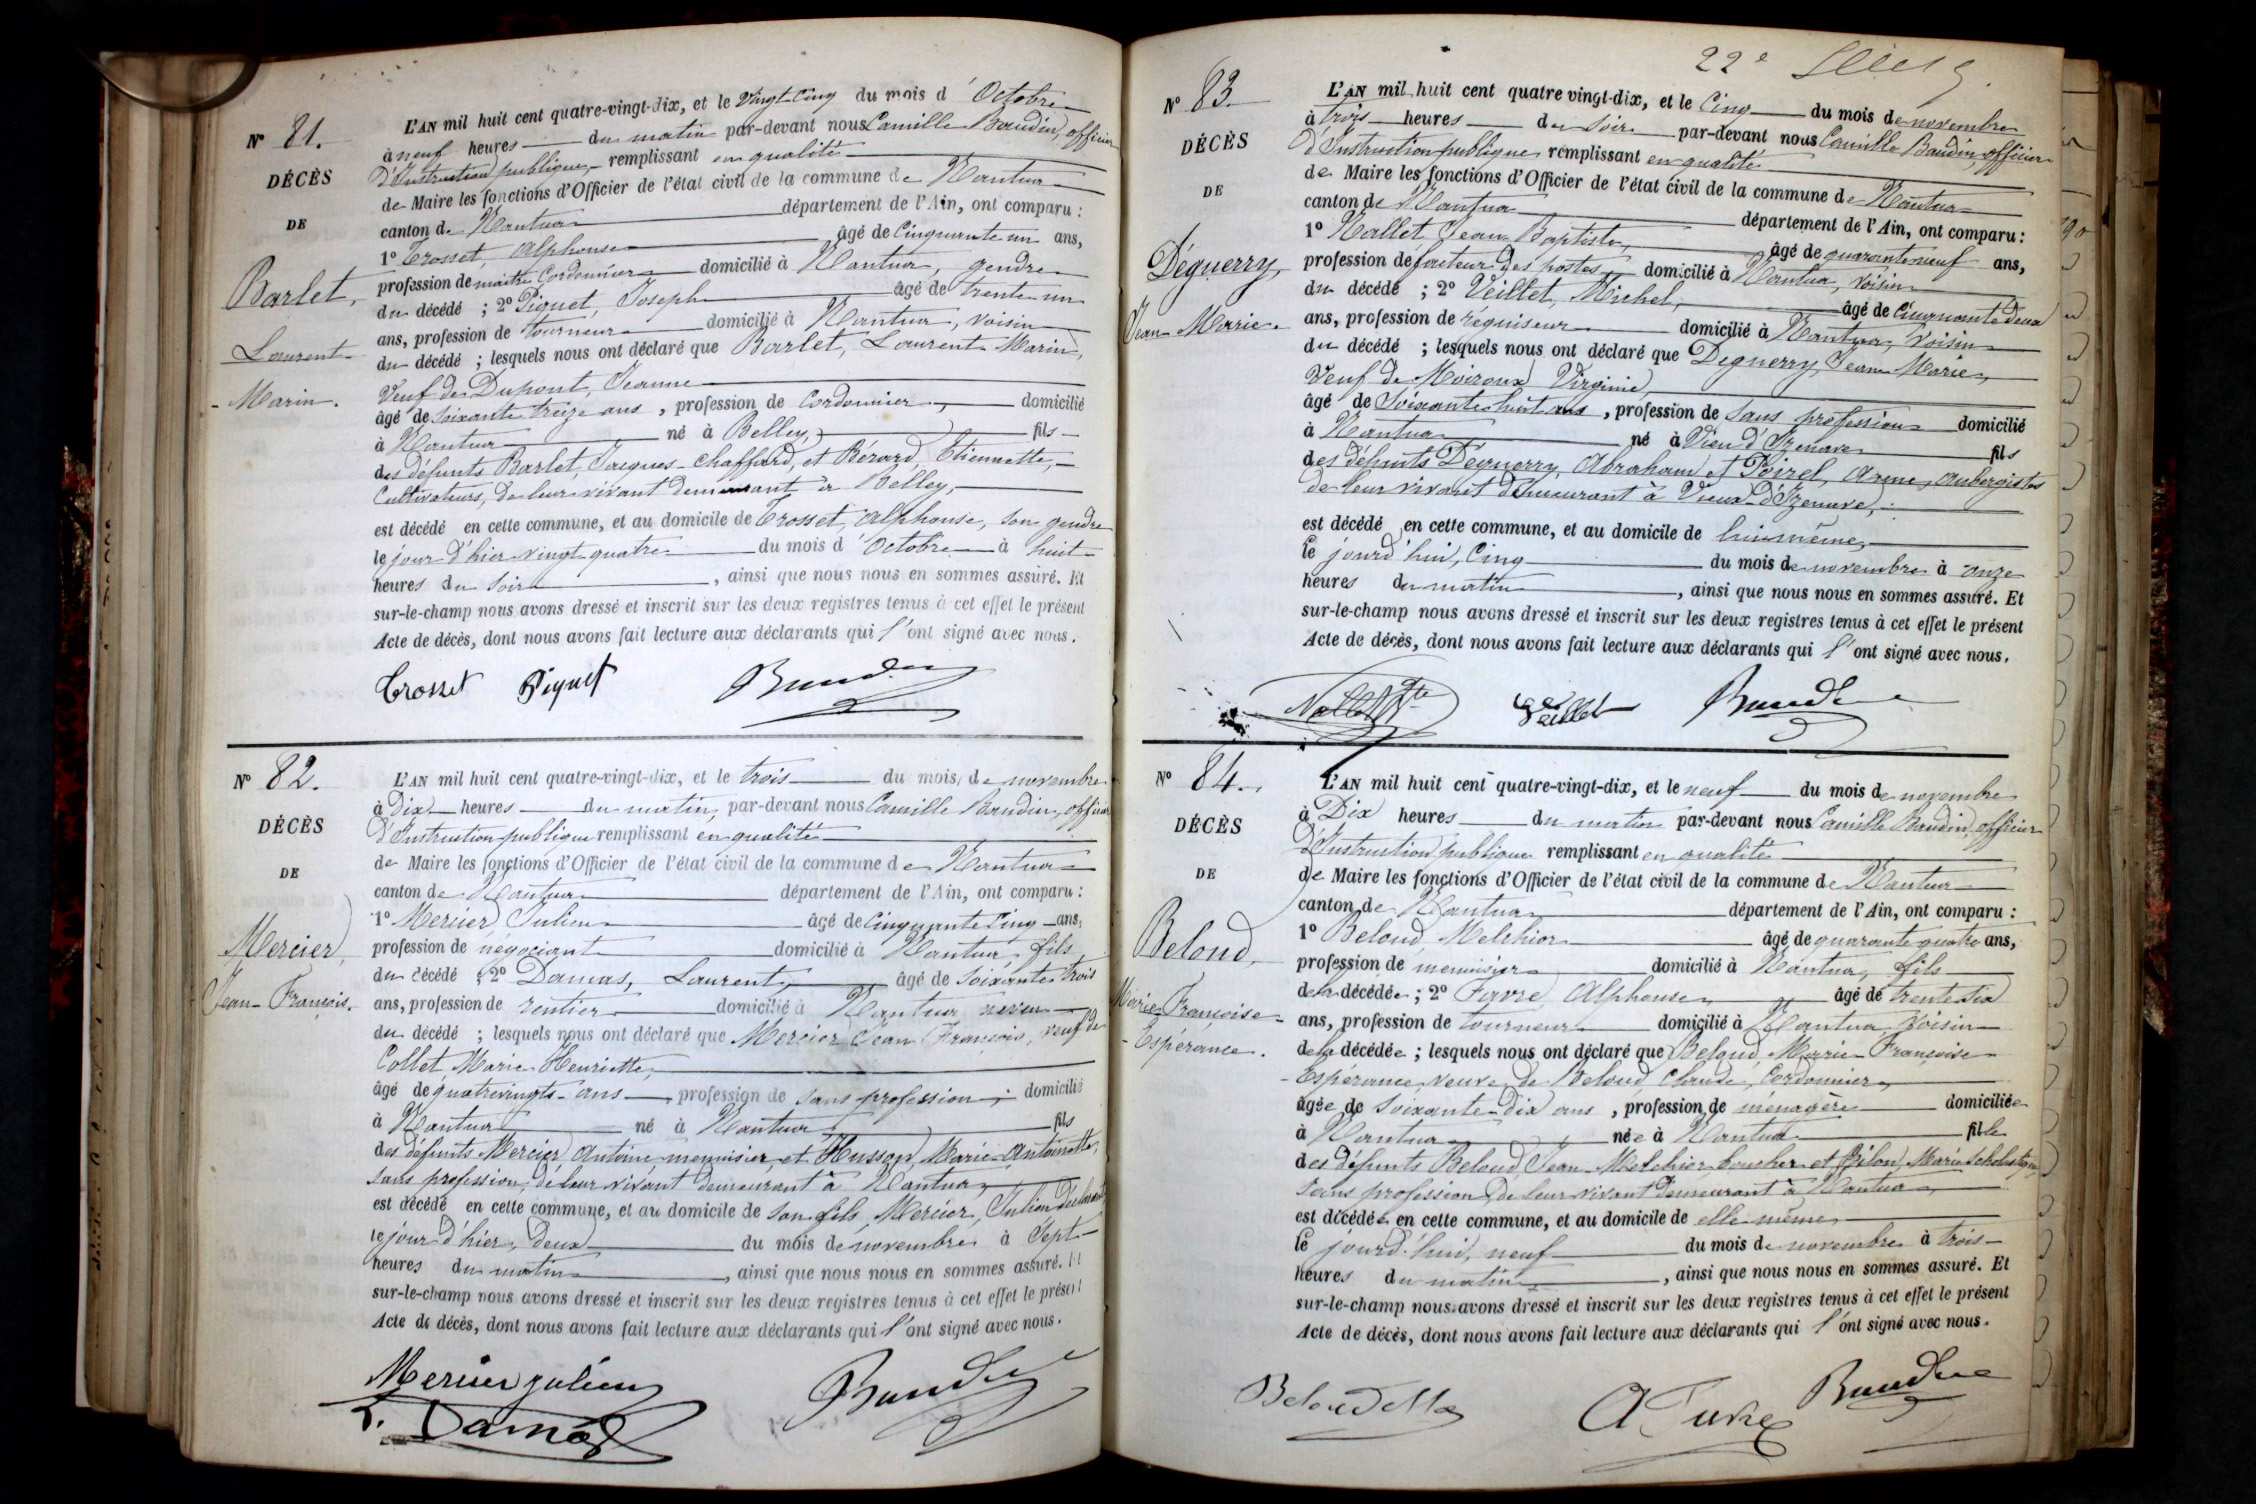 N° 81.
DÉCÈS
DE
Barlet,
Laurent
Marin.
L'AN mil huit cent quatre-vingt-dix, et le vingt cinq du mois d'Octobre
à neuf heures du matin par-devant nous Camille Baudin, officier
d'Instruction publique, remplissant en qualité
de Maire les fonctions d'Officier de l'état civil de la commune de Nantua
canton de Nantua département de l'Ain, ont comparu :
1° Crosset, Alphonse âgé de Cinquante un ans,
profession de maître Cordonnier domicilié à Nantua, gendre
du décédé ; 2° Piquet, Joseph âgé de trente un
ans, profession de tourneur domicilié à Nantua, voisin
du décédé ; lesquels nous ont déclaré que Barlet, Laurent Marin,
Veuf de Dupont, Jeanne
âgé de soixante treize ans, profession de Cordonnier, domicilié
à Nantua né à Belley, fils
des défunts Barlet, Jacques-Chaffard, et Bérard, Etiennette,
Cultivateurs, de leur vivant demeurant à Belley,
est décédé en cette commune, et au domicile de Crosset, Alphonse, son gendre
le jour d'hier vingt quatre du mois d'Octobre à huit
heures du soir, ainsi que nous nous en sommes assuré. Et
sur-le-champ nous avons dressé et inscrit sur les deux registres tenus à cet effet le présent
Acte de décès, dont nous avons fait lecture aux déclarants qui l'ont signé avec nous.
Crosset Piquet Baudin
N° 82.
DÉCÈS
DE
Mercier,
Jean-François.
L'AN mil huit cent quatre-vingt-dix, et le trois du mois de novembre
à Dix heures du matin, par-devant nous Camille Baudin, officier
d'Instruction publique remplissant en qualité
de Maire les fonctions d'Officier de l'état civil de la commune de Nantua
canton de Nantua département de l'Ain, ont comparu :
1° Mercier, Julien âgé de Cinquante Cinq ans,
profession de négociant domicilié à Nantua, fils
du décédé ; 2° Damas, Laurent, âgé de soixante trois
ans, profession de rentier domicilié à Nantua neveu
du décédé ; lesquels nous ont déclaré que Mercier Jean François, veuf de
Collet, Marie Henriette,
âgé de quatrevingts ans, profession de sans profession, domicilié
à Nantua né à Nantua, fils
des défunts Mercier, Antoine menuisier, et Husson, Marie-Antoinette,
sans profession, de leur vivant demeurant à Nantua,
est décédé en cette commune, et au domicile de son fils, Mercier, Julien déclarant
le jour d'hier, deux du mois de novembre à sept
heures du matin, ainsi que nous nous en sommes assuré. Et
sur-le-champ nous avons dressé et inscrit sur les deux registres tenus à cet effet le présent
Acte de décès, dont nous avons fait lecture aux déclarants qui l'ont signé avec nous.
Mercier julien Baudin
L. Damas
22e
N° 83.
DÉCÈS
DE
Déguerry,
Jean Marie.
L'AN mil huit cent quatre vingt-dix, et le Cinq du mois de novembre
à trois heures du soir par-devant nous Camille Baudin, officier
d'Instruction publique remplissant en qualité
de Maire les fonctions d'Officier de l'état civil de la commune de Nantua
canton de Nantua département de l'Ain, ont comparu :
1° Nallet Jean Baptiste, âgé de quarante neuf ans,
profession de facteur des postes domicilié à Nantua, voisin
du décédé ; 2° Veillet, Michel, âgé de Cinquante deux
ans, profession de réguiseur domicilié à Nantua, voisin
du décédé ; lesquels nous ont déclaré que Déguerry, Jean Marie,
Veuf de Moiroux Virginie,
âgé de soixante huit ans, profession de sans profession domicilié
à Nantua né à Vieu d'Izenave fils
des défunts Déguerry, Abraham et Poirel, Anne, aubergistes
de leur vivant demeurant à Vieux d'Izenave,
est décédé en cette commune, et au domicile de lui même,
le jourd'hui, Cinq du mois de novembre à onze
heures du matin, ainsi que nous nous en sommes assuré. Et
sur-le-champ nous avons dressé et inscrit sur les deux registres tenus à cet effet le présent
Acte de décès, dont nous avons fait lecture aux déclarants qui l'ont signé avec nous.
Nallet Bte Veillet Baudin
N° 84.
DÉCÈS
DE
Beloud,
Marie Françoise
Espérance.
L'AN mil huit cent quatre-vingt-dix, et le neuf du mois de novembre
à Dix heures du matin par-devant nous Camille Baudin, officier
d'Instruction publique remplissant en qualité
de Maire les fonctions d'Officier de l'état civil de la commune de Nantua
canton de Nantua département de l'Ain, ont comparu :
1° Beloud, Melchior âgé de quarante quatre ans,
profession de menuisier domicilié à Nantua, fils
de la décédée ; 2° Favre Alphonse, âgé de trente six
ans, profession de tourneur domicilié à Nantua voisin
de la décédée ; lesquels nous ont déclaré que Beloud Marie Françoise
Espérance, veuve de Beloud, Claude, Cordonnier,
âgée de soixante-dix ans, profession de ménagère domiciliée
à Nantua née à Nantua fille
des défunts Beloud, Jean Melchior, boucher et Bilon, Marie Scholastique
sans profession, de leur vivant demeurant à Nantua,
est décédée en cette commune, et au domicile de elle même,
le jourd'hui, neuf du mois de novembre à trois
heures du matin, ainsi que nous nous en sommes assuré. Et
sur-le-champ nous avons dressé et inscrit sur les deux registres tenus à cet effet le présent
Acte de décès, dont nous avons fait lecture aux déclarants qui l'ont signé avec nous.
Beloud A Favre Baudin